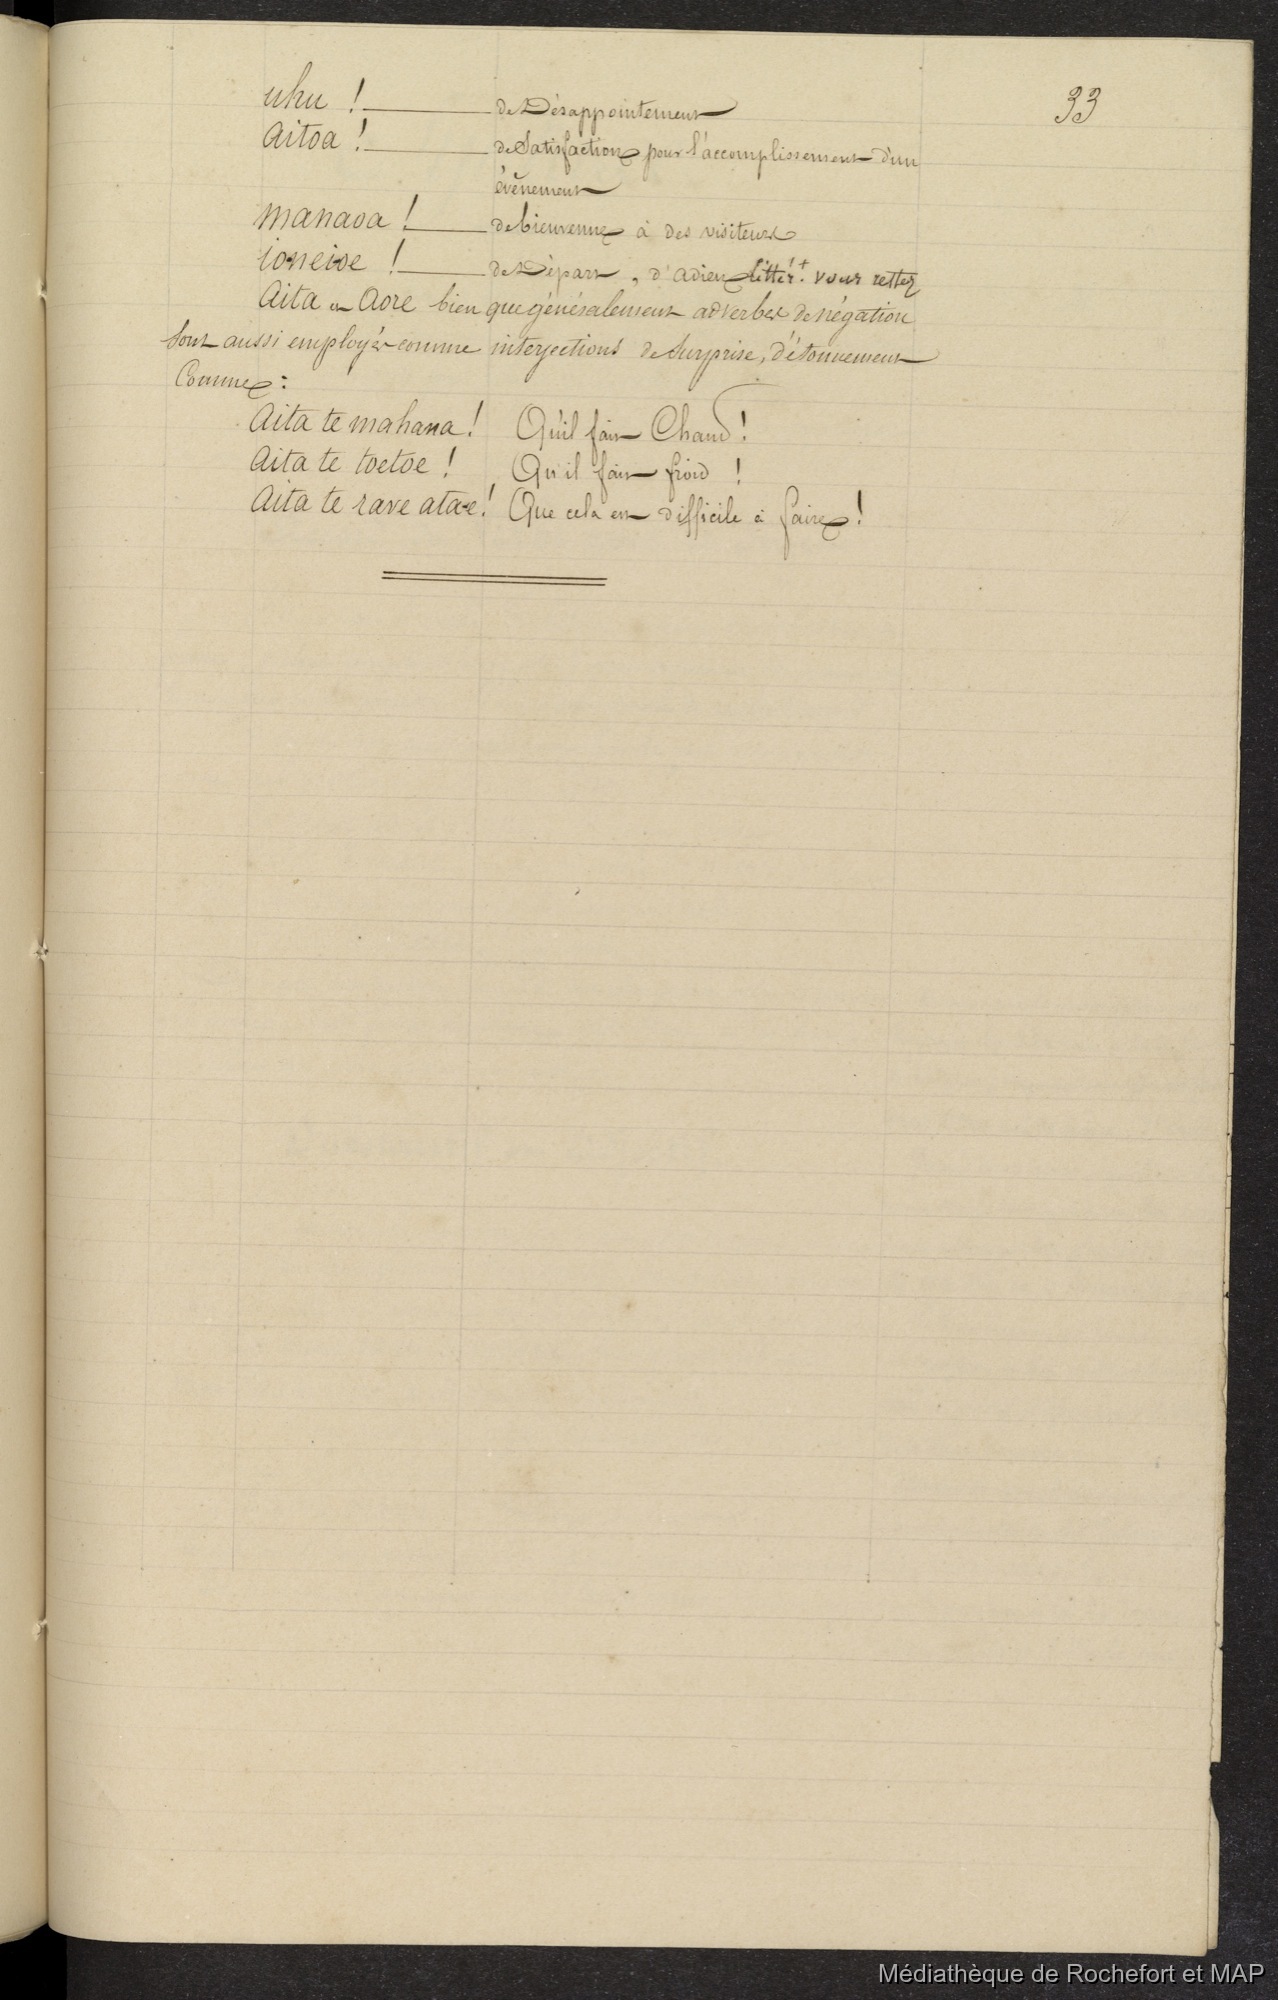 33
uhu ! de Désappointement
Aitoa ! de Satisfaction pour l'accomplissement d'un
évènement
manava ! de bienvenue à des visiteurs
ioneioe ! de Départ, d'adieu littér.t vous restez
Aita et Aore bien que généralement adverbes de négation
sont aussi employés comme interjections de Surprise, d'étonnement
Comme :
Aita te mahana ! Qu'il fait Chaud !
Aita te toetoe ! Qu'il fait froid !
Aita te rave atae ! Que cela est difficile à faire !
Médiathèque de Rochefort et MAP